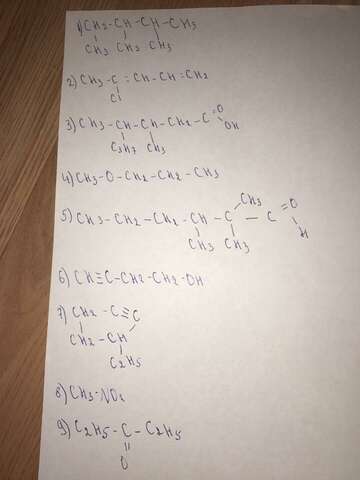 1) CH2 - CH - CH - CH3
CH3 CH3 CH3
2) CH3 - C = CH - CH = CH2
Cl
3) CH3 - CH - CH - CH2 - C = O
OH
C3H7 CH3
4) CH3 - O - CH2 - CH2 - CH3
CH3
5) CH3 - CH2 - CH2 - CH - C - C = O
H
CH3 CH3
6) CH ≡ C - CH2 - CH2 - OH
7) CH2 - C ≡ C
CH2 - CH
C2H5
8) CH3 - NO2
9) C2H5 - C - C2H5
O